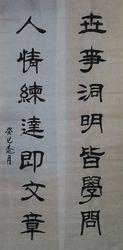 世事洞明皆學問
人情練達即文章
癸巳春月